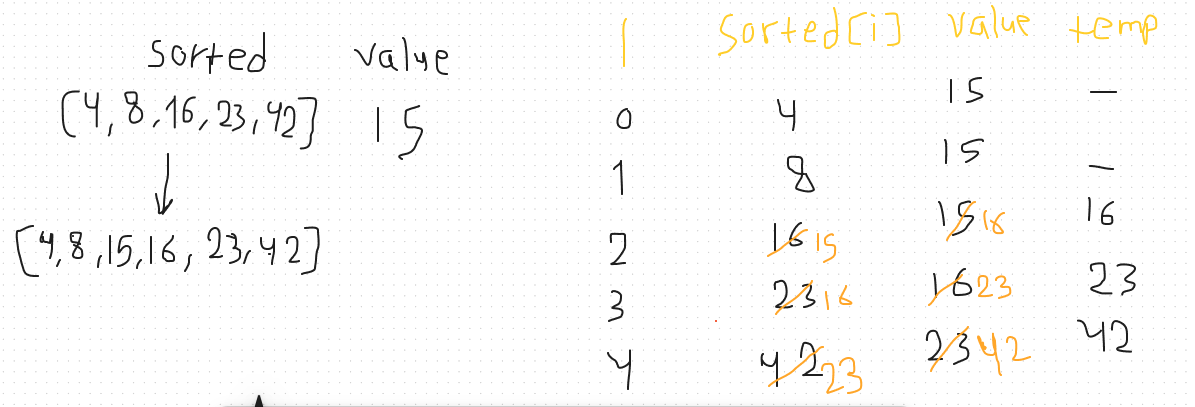 sorted value
[4, 8, 16, 23, 42] 15
[4, 8, 15, 16, 23, 42]
i sorted[i] value temp
0 4 15 —
1 8 15 —
2 16 15 15 16 16
3 23 16 16 23 23
4 42 23 23 42 42